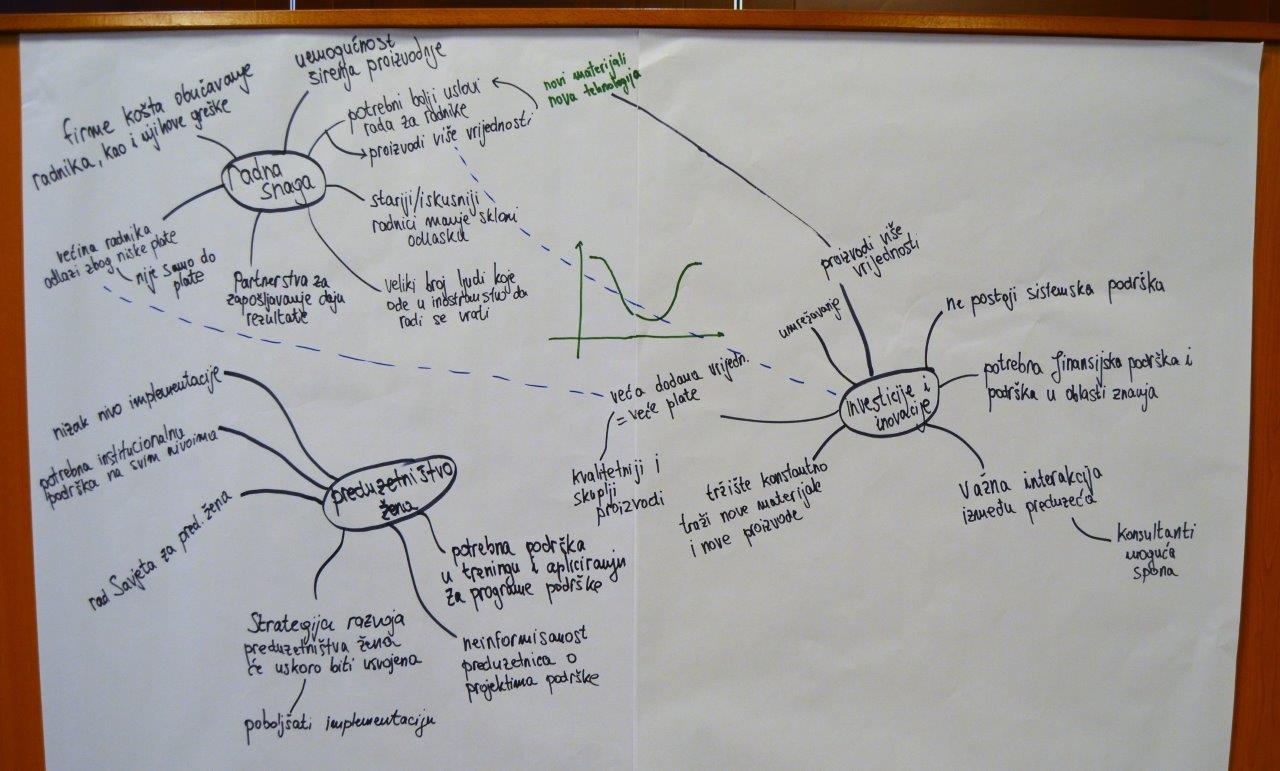 nemogućnost
širenja proizvodnje
firme košta obučavanje
radnika, kao i njihove greške
potrebni bolji uslovi
rada za radnike
proizvodi više vrijednosti
novi materijali
nova tehnologija
radna
snaga
stariji/iskusniji
radnici manje skloni
odlasku
većina radnika
odlazi zbog niske plate
nije samo do
plate
Partnerstva za
zapošljavanje daju
rezultate
veliki broj ljudi koje
ode u inostranstvo da
radi se vrati
proizvodi više
vrijednosti
umrežavanje
ne postoji sistemska podrška
potrebna finansijska podrška i
podrška u oblasti znanja
Investicije i
inovacije
veća dodana vrijedn.
= veće plate
kvalitetniji i
skuplji
proizvodi
tržište konstantno
traži nove materijale
i nove proizvode
Važna interakcija
između preduzeća
konsultanti
moguća
spona
nizak nivo implementacije
potrebna institucionalna
podrška na svim nivoima
rad Savjeta za pred. žena
preduzetništvo
žena
potrebna podrška
u treningu i apliciranju
za programe podrške
Strategija razvoja
preduzetništva žena
će uskoro biti usvojena
poboljšati implementaciju
neinformisanost
preduzetnica o
projektima podrške